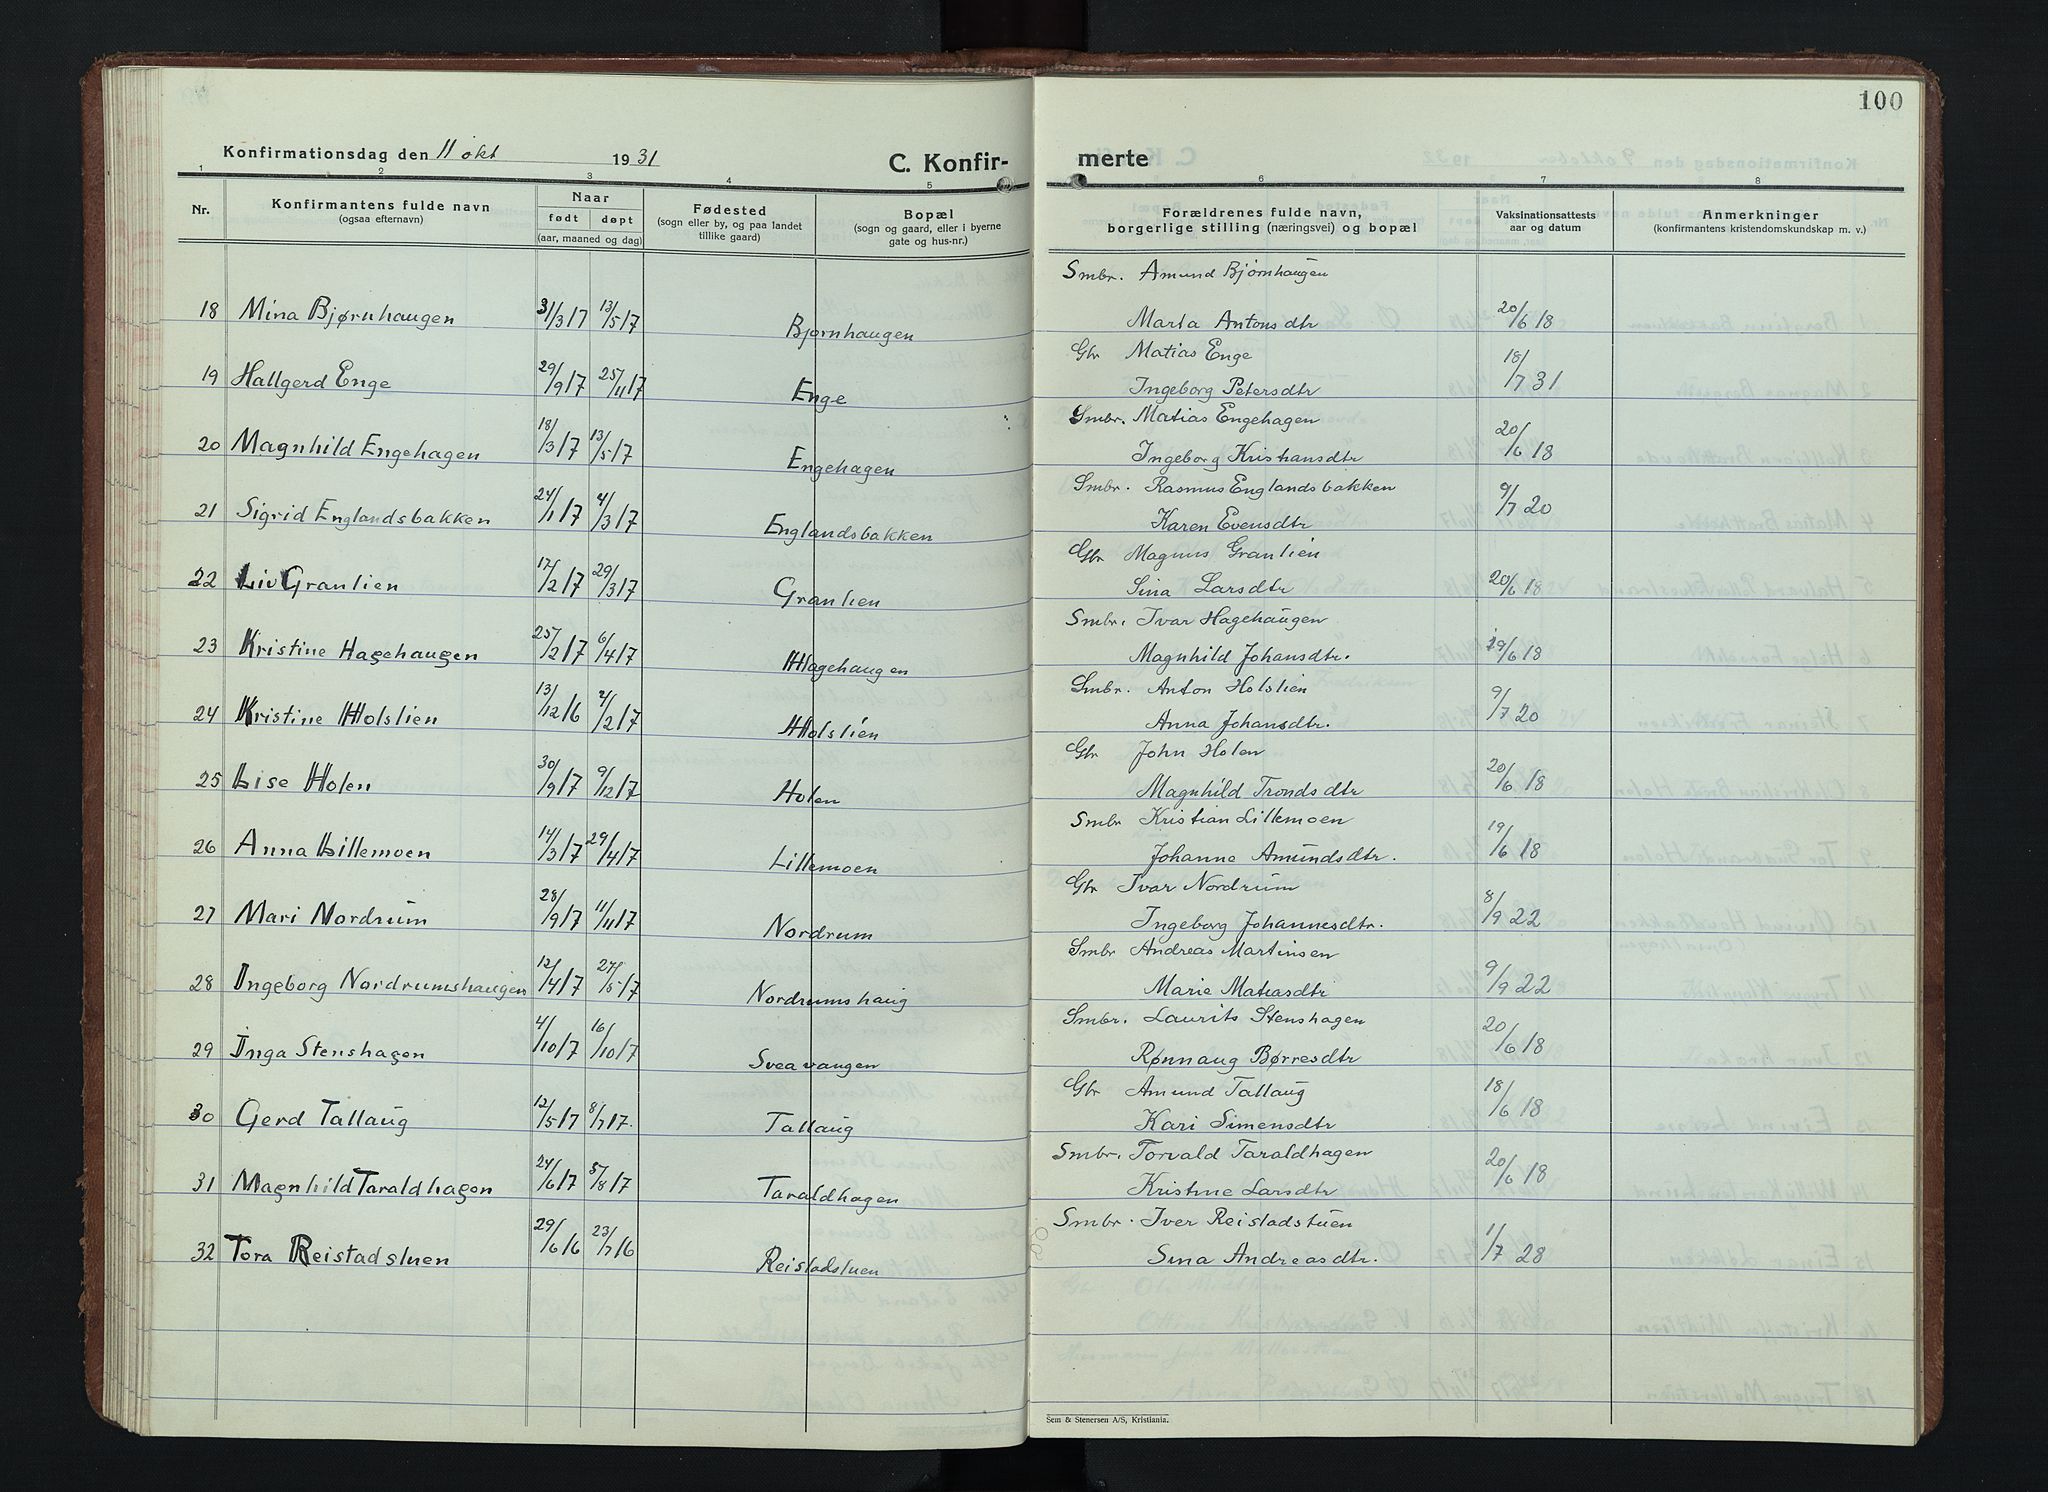 100
Konfirmationsdag den 11 okt 1931
C. Konfir-
merte
1 2 3 4 5 6 7 8
Nr.
Konfirmantens fulde navn
(ogsaa efternavn)
Naar
født døpt
(aar, maaned og dag)
Fødested
(sogn eller by, og paa landet
tillike gaard)
Bopæl
(sogn og gaard, eller i byerne
gate og hus-nr.)
Forældrenes fulde navn,
borgerlige stilling (næringsvei) og bopæl
Vaksinationsattests
aar og datum
Anmerkninger
(konfirmantens kristendomskundskap m. v.)
Smbr. Amund Bjørnhaugen
18 Mina Bjørnhaugen 31/3 17 13/5 17 Bjørnhaugen Marta Antonsdtr 20/6 18
Gbr Matias Enge
19 Hallgerd Enge 29/9 17 25/11 17 Enge Ingeborg Petersdtr 18/7 31
Smbr. Matias Engehagen
20 Magnhild Engehagen 18/3 17 13/5 17 Engehagen Ingeborg Kristiansdtr 20/6 18
Smbr. Rasmus Englandsbakken
21 Sigrid Englandsbakken 24/1 17 4/3 17 Englandsbakken Karen Evensdtr 9/7 20
Gbr Magnus Granlien
22 Liv Granlien 17/2 17 29/3 17 Granlien Sina Larsdtr 20/6 18
Smbr. Ivar Hagehaugen
23 Kristine Hagehaugen 25/2 17 6/4 17 Hagehaugen Magnhild Johansdtr. 19/6 18
Smbr. Anton Holslien
24 Kristine Holslien 13/12 16 2/2 17 Holslien Anna Johansdtr. 9/7 20
Gbr John Holen
25 Lise Holen 30/9 17 9/12 17 Holen Magnhild Trondsdtr 20/6 18
Smbr Kristian Lillemoen
26 Anna Lillemoen 14/3 17 29/4 17 Lillemoen Johanne Amundsdtr. 19/6 18
Gbr Ivar Nordrum
27 Mari Nordrum 28/9 17 11/11 17 Nordrum Ingeborg Johannesdtr. 8/9 22
Smbr Andreas Martinsen
28 Ingeborg Nordrumshaugen 12/4 17 27/5 17 Nordrumshaug Marie Matiasdtr 9/9 22
Smbr. Laurits Stenshagen
29 Inga Stenshagen 4/10 17 16/10 17 Sveavangen Rønnaug Børresdtr 20/6 18
Gbr Amund Tallaug
30 Gerd Tallaug 12/5 17 8/7 17. Tallaug Kari Simensdtr 18/6 18
Smbr. Torvald Taraldhagen
31 Magnhild Taraldhagen 24/6 17 5/8 17 Taraldhagen Kristine Larsdtr 20/6 18
Smbr. Iver Reistadstuen
32 Tora Reistadstuen 29/6 16 23/7 16 Reistadstuen Sina Andreasdtr. 1/7 28
Sem & Stenersen A/S, Kristiania.